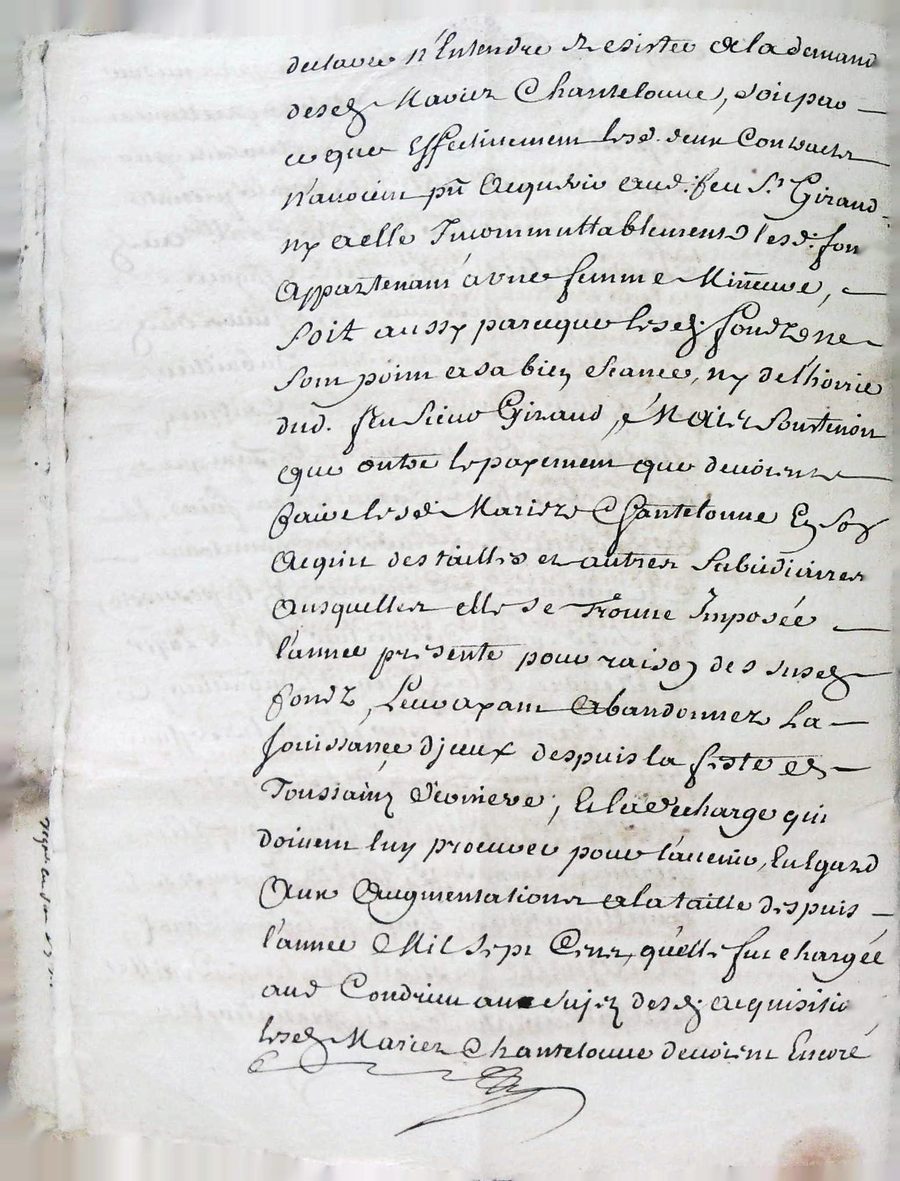 declaré n'Entendre Resister a la demand
desd. Mariez Chantelouue, soit par
ce que Effectiuement lesd. deux Contracts
n'auoient pû Acquerir aud. feu Sr. Giraud
ny a elle Incommuttablement lesd. fon
Appartenant a vne femme Mineure,
Soit aussy parceque lesd. fondz ne
sont point a sa bien seance, ny de l'hoirie
dud. feu Sieur Giraud, Mais Soustenoit
que outre le payement que deuoient
faire lesd. Mariez Chantelouue En son
Acquit des tailles et autres Subsidiaires
Ausquelles elle se Trouue Imposée
l'annee presente pour raison des susd.
fondz, Leur ayant Abandonnez La
Jouissance d'jceux despuis la feste de
Toussaintz derniere, Et la decharge qui
doiuent luy procurer pour l'auenir, Eu Egard
Aux Augmentations a la taille despuis
l'annee Mil Sept Cent, qu'elle fut chargée
aud Condrieu au sujet desd. acquisitio
lesd. Mariez Chantelouue deuoient Encore